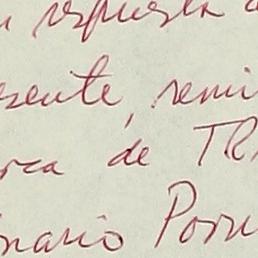 n respuesta a
esente, remi
rca de TR
nario Porr